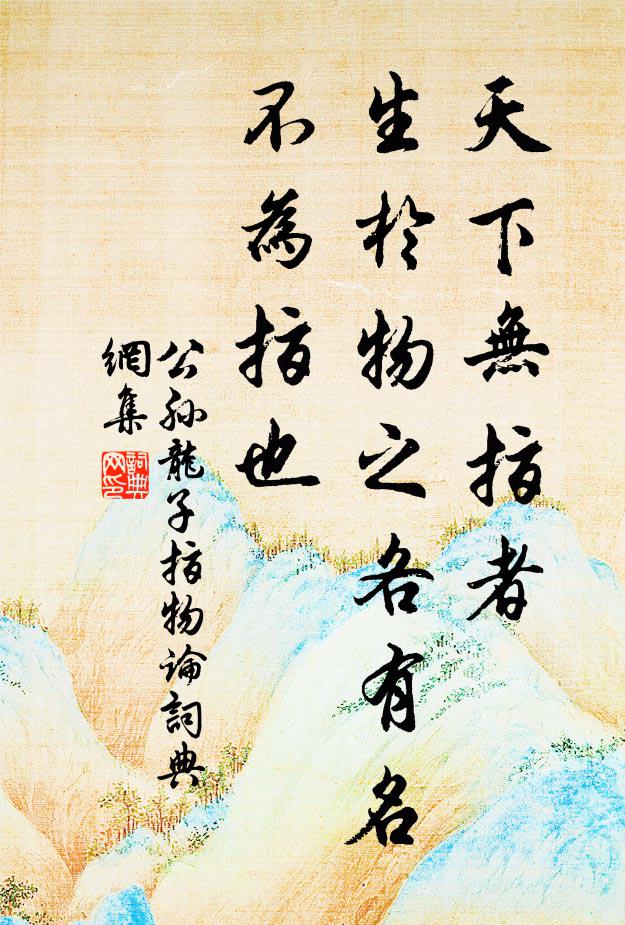 天下無指者
生於物之各有名
不為指也
公孫龍子指物論詞典
網集
詞典網印